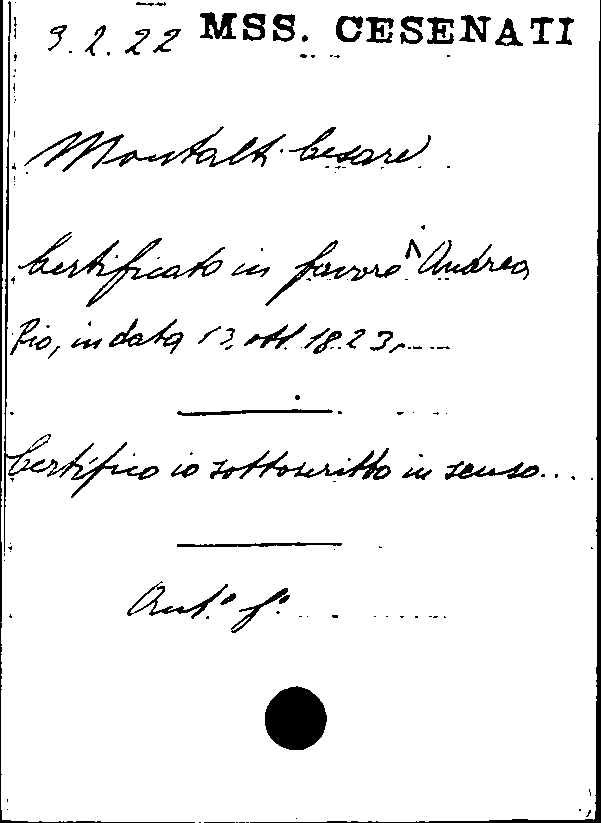 9.2.22 MSS. CESENATI
Montalti Cesare
Certificato in favore ^ Andrea
Pio, in data 13. ott. 1823,
Certifico io sottoscritto in senso...
Aut.° f.°